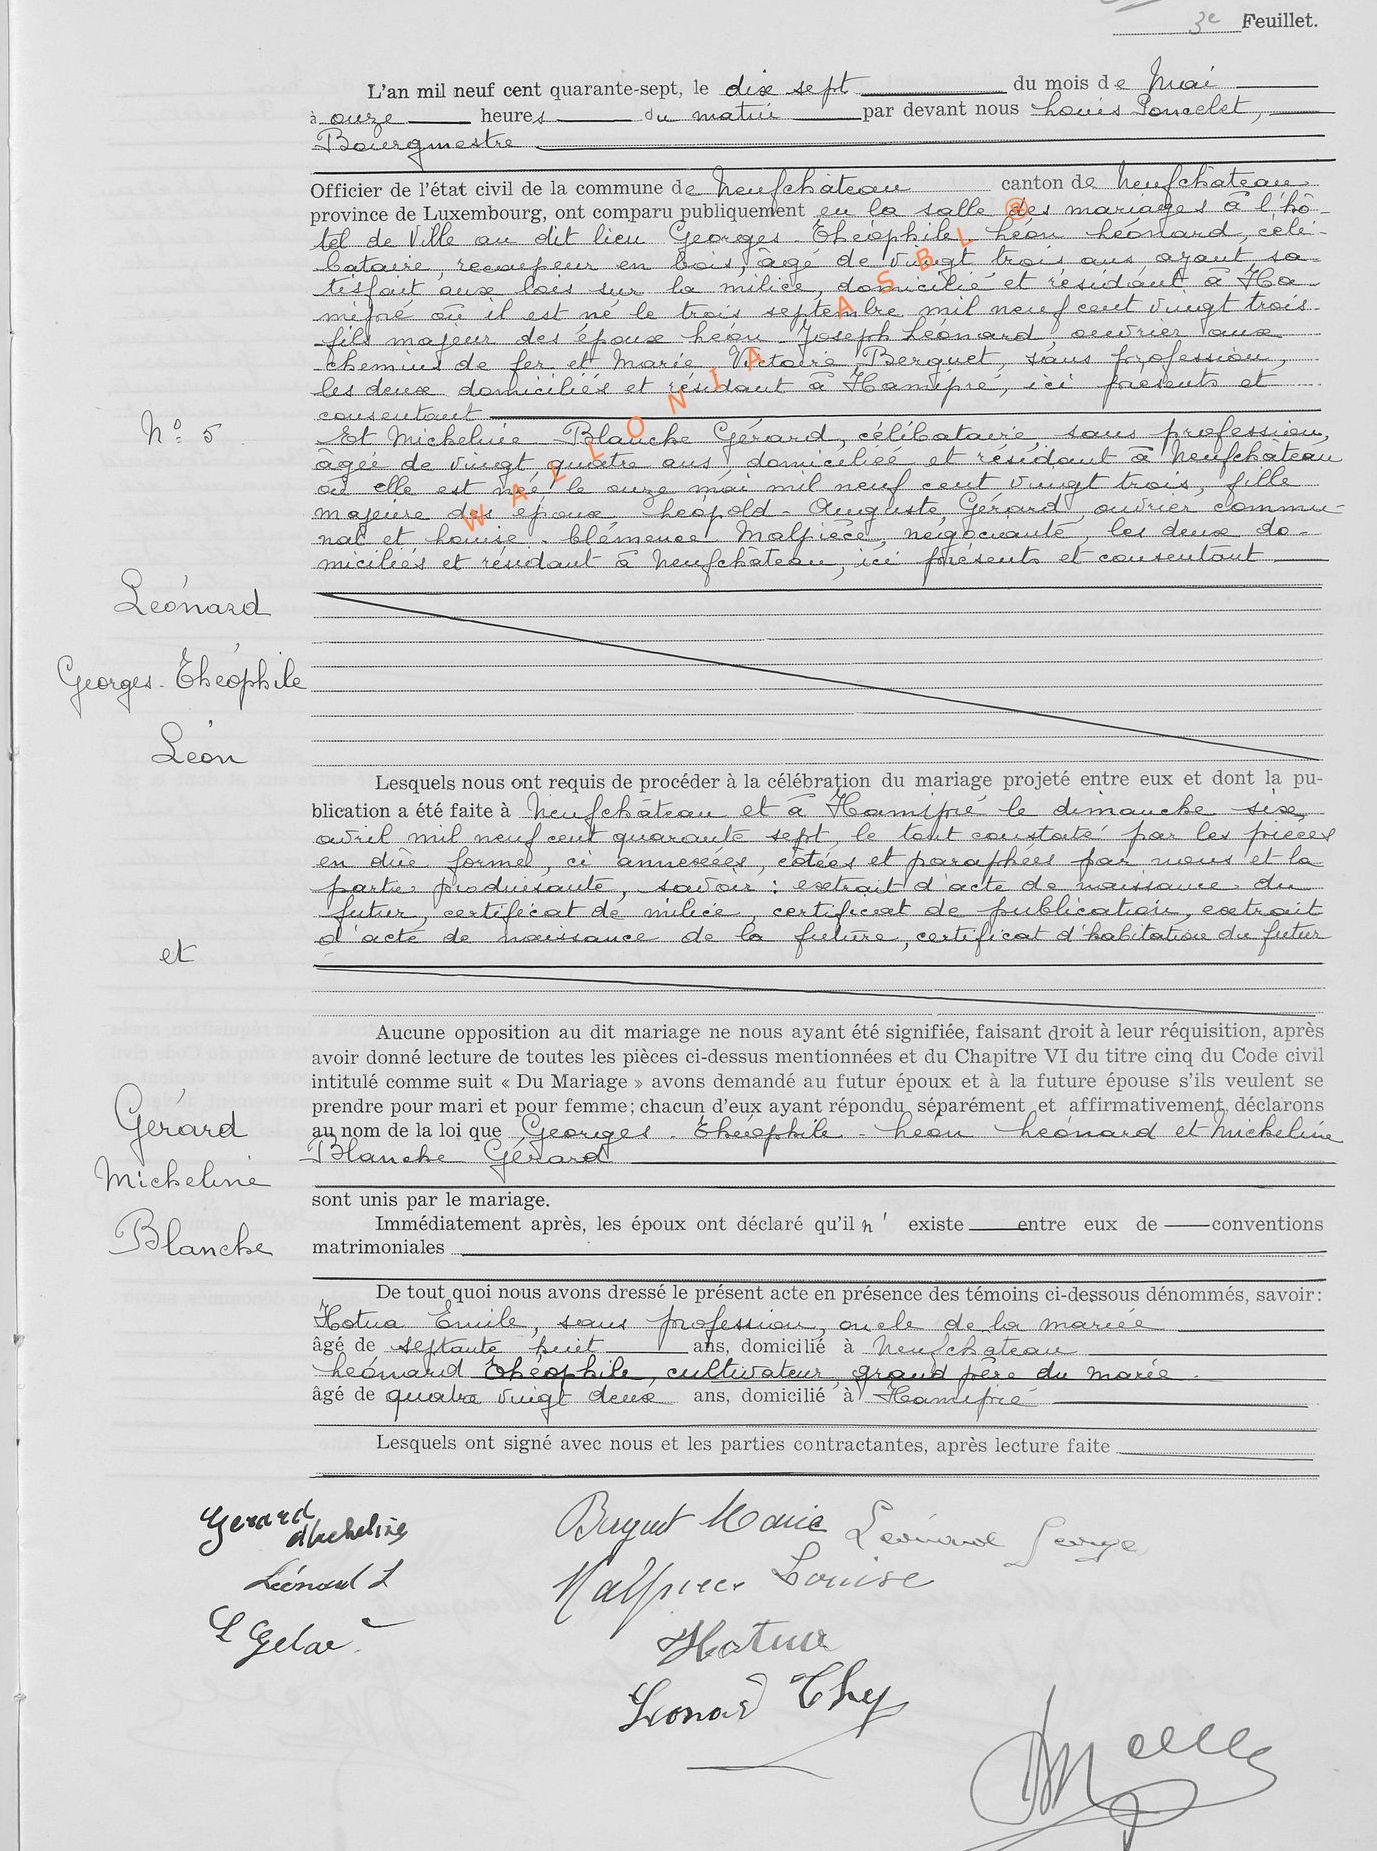 3e Feuillet.
L'an mil neuf cent quarante-sept, le dix sept du mois de Mai
à onze heures du matin par devant nous Louis Poncelet,
Bourgmestre
Officier de l'état civil de la commune de Neufchâteau canton de Neufchâteau
province de Luxembourg, ont comparu publiquement en la salle des mariages à l'hô-
tel de Ville au dit lieu Georges-Théophile-Léon Léonard, céli-
bataire, recoupeur en bois, âgé de vingt trois ans ayant sa-
tisfait aux lois sur la milice, domicilié et résidant à Ha-
mipré où il est né le trois septembre mil neuf cent vingt trois
fils majeur des époux Léon-Joseph Léonard, ouvrier aux
chemins de fer et Marie-Victoire Berquet, sans profession,
les deux domiciliés et résidant à Hamipré, ici présents et
consentant
N° 5
Et Micheline-Blanche Gérard, célibataire, sans profession,
âgée de vingt quatre ans, domiciliée et résidant à Neufchâteau
où elle est née le onze mai mil neuf cent vingt trois, fille
majeure des époux Léopold-Auguste Gérard, ouvrier commu-
nal et Louise-Clémence Malpièce, négociante, les deux do-
miciliés et résidant à Neufchâteau, ici présents et consentant
WALLONIA ASBL ®
Léonard
Georges-Théophile
Léon
Lesquels nous ont requis de procéder à la célébration du mariage projeté entre eux et dont la pu-
blication a été faite à Neufchâteau et à Hamipré le dimanche six
avril mil neuf cent quarante sept, le tout constaté par les pièces
en due forme, ci annexées, cotées et paraphées par nous et la
partie produisante, savoir : extrait d'acte de naissance du
futur, certificat de milice, certificat de publication, extrait
d'acte de naissance de la future, certificat d'habitation du futur
et
Aucune opposition au dit mariage ne nous ayant été signifiée, faisant droit à leur réquisition, après
avoir donné lecture de toutes les pièces ci-dessus mentionnées et du Chapitre VI du titre cinq du Code civil
intitulé comme suit « Du Mariage » avons demandé au futur époux et à la future épouse s'ils veulent se
prendre pour mari et pour femme; chacun d'eux ayant répondu séparément et affirmativement, déclarons
au nom de la loi que Georges-Théophile-Léon Léonard et Micheline
Blanche Gérard
Gérard
Micheline
Blanche
sont unis par le mariage.
Immédiatement après, les époux ont déclaré qu'il n' existe entre eux de conventions
matrimoniales
De tout quoi nous avons dressé le présent acte en présence des témoins ci-dessous dénommés, savoir:
Hotua Emile, sans profession, oncle de la mariée
âgé de septante huit ans, domicilié à Neufchâteau
Léonard Théophile, cultivateur, grand père du marié
âgé de quatre vingt deux ans, domicilié à Hamipré
Lesquels ont signé avec nous et les parties contractantes, après lecture faite
Gérard Micheline
Berquet Marie
Léonard George
Léonard L
Malpièce Louise
L Gérard
Hotua
Léonard Thy